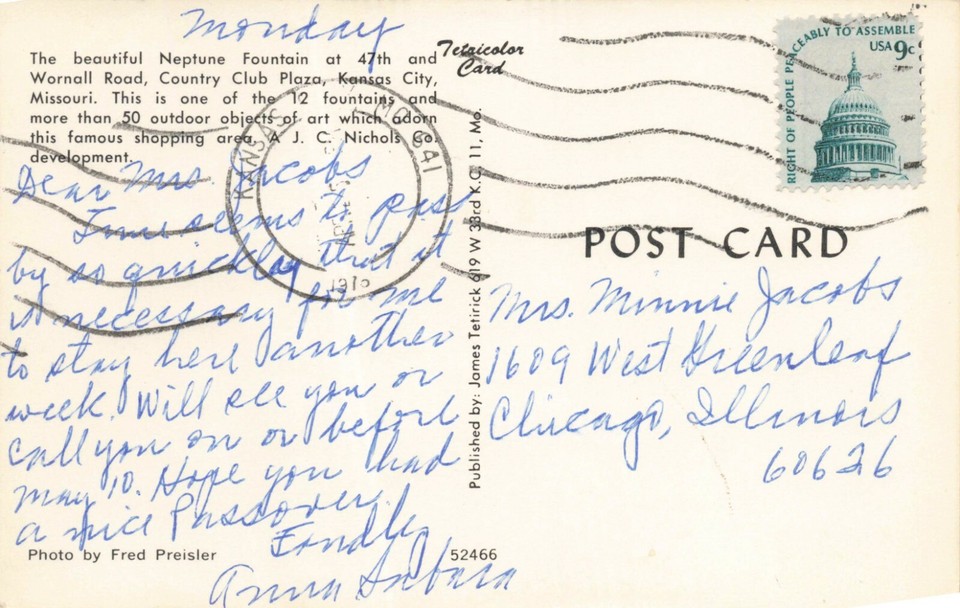 Monday
The beautiful Neptune Fountain at 47th and
Wornall Road, Country Club Plaza, Kansas City,
Missouri. This is one of the 12 fountains and
more than 50 outdoor objects of art which adorn
this famous shopping area. A J. C. Nichols Co.
development.
Dear Mrs. Jacobs
Time seems to pass
by so quickly that it
is necessary for me
to stay here another
week. Will see you or
call you on or before
May 10. Hope you had
a nice Passover.
Fondly,
Anna
Photo by Fred Preisler
52466
Tetricolor
Card
Published by: James Tetirick 619 W 33rd K.C. 11, Mo.
KANSAS MO 641
1976
RIGHT OF PEOPLE PEACEABLY TO ASSEMBLE
USA 9c
POST CARD
Mrs. Minnie Jacobs
1609 West Greenleaf
Chicago, Illinois
60626